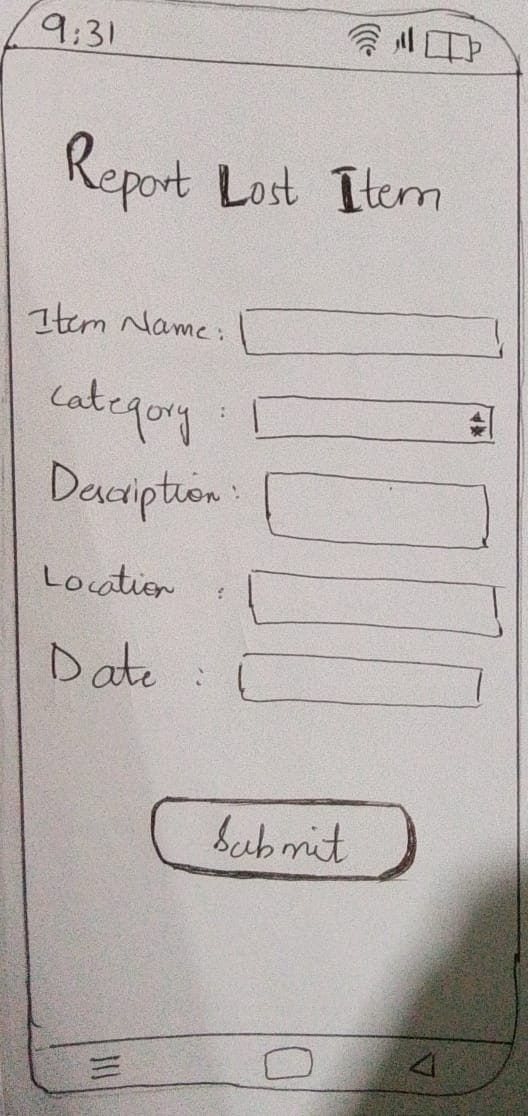 9:31
Report Lost Item
Item Name:
Category :
Description:
Location :
Date :
Submit